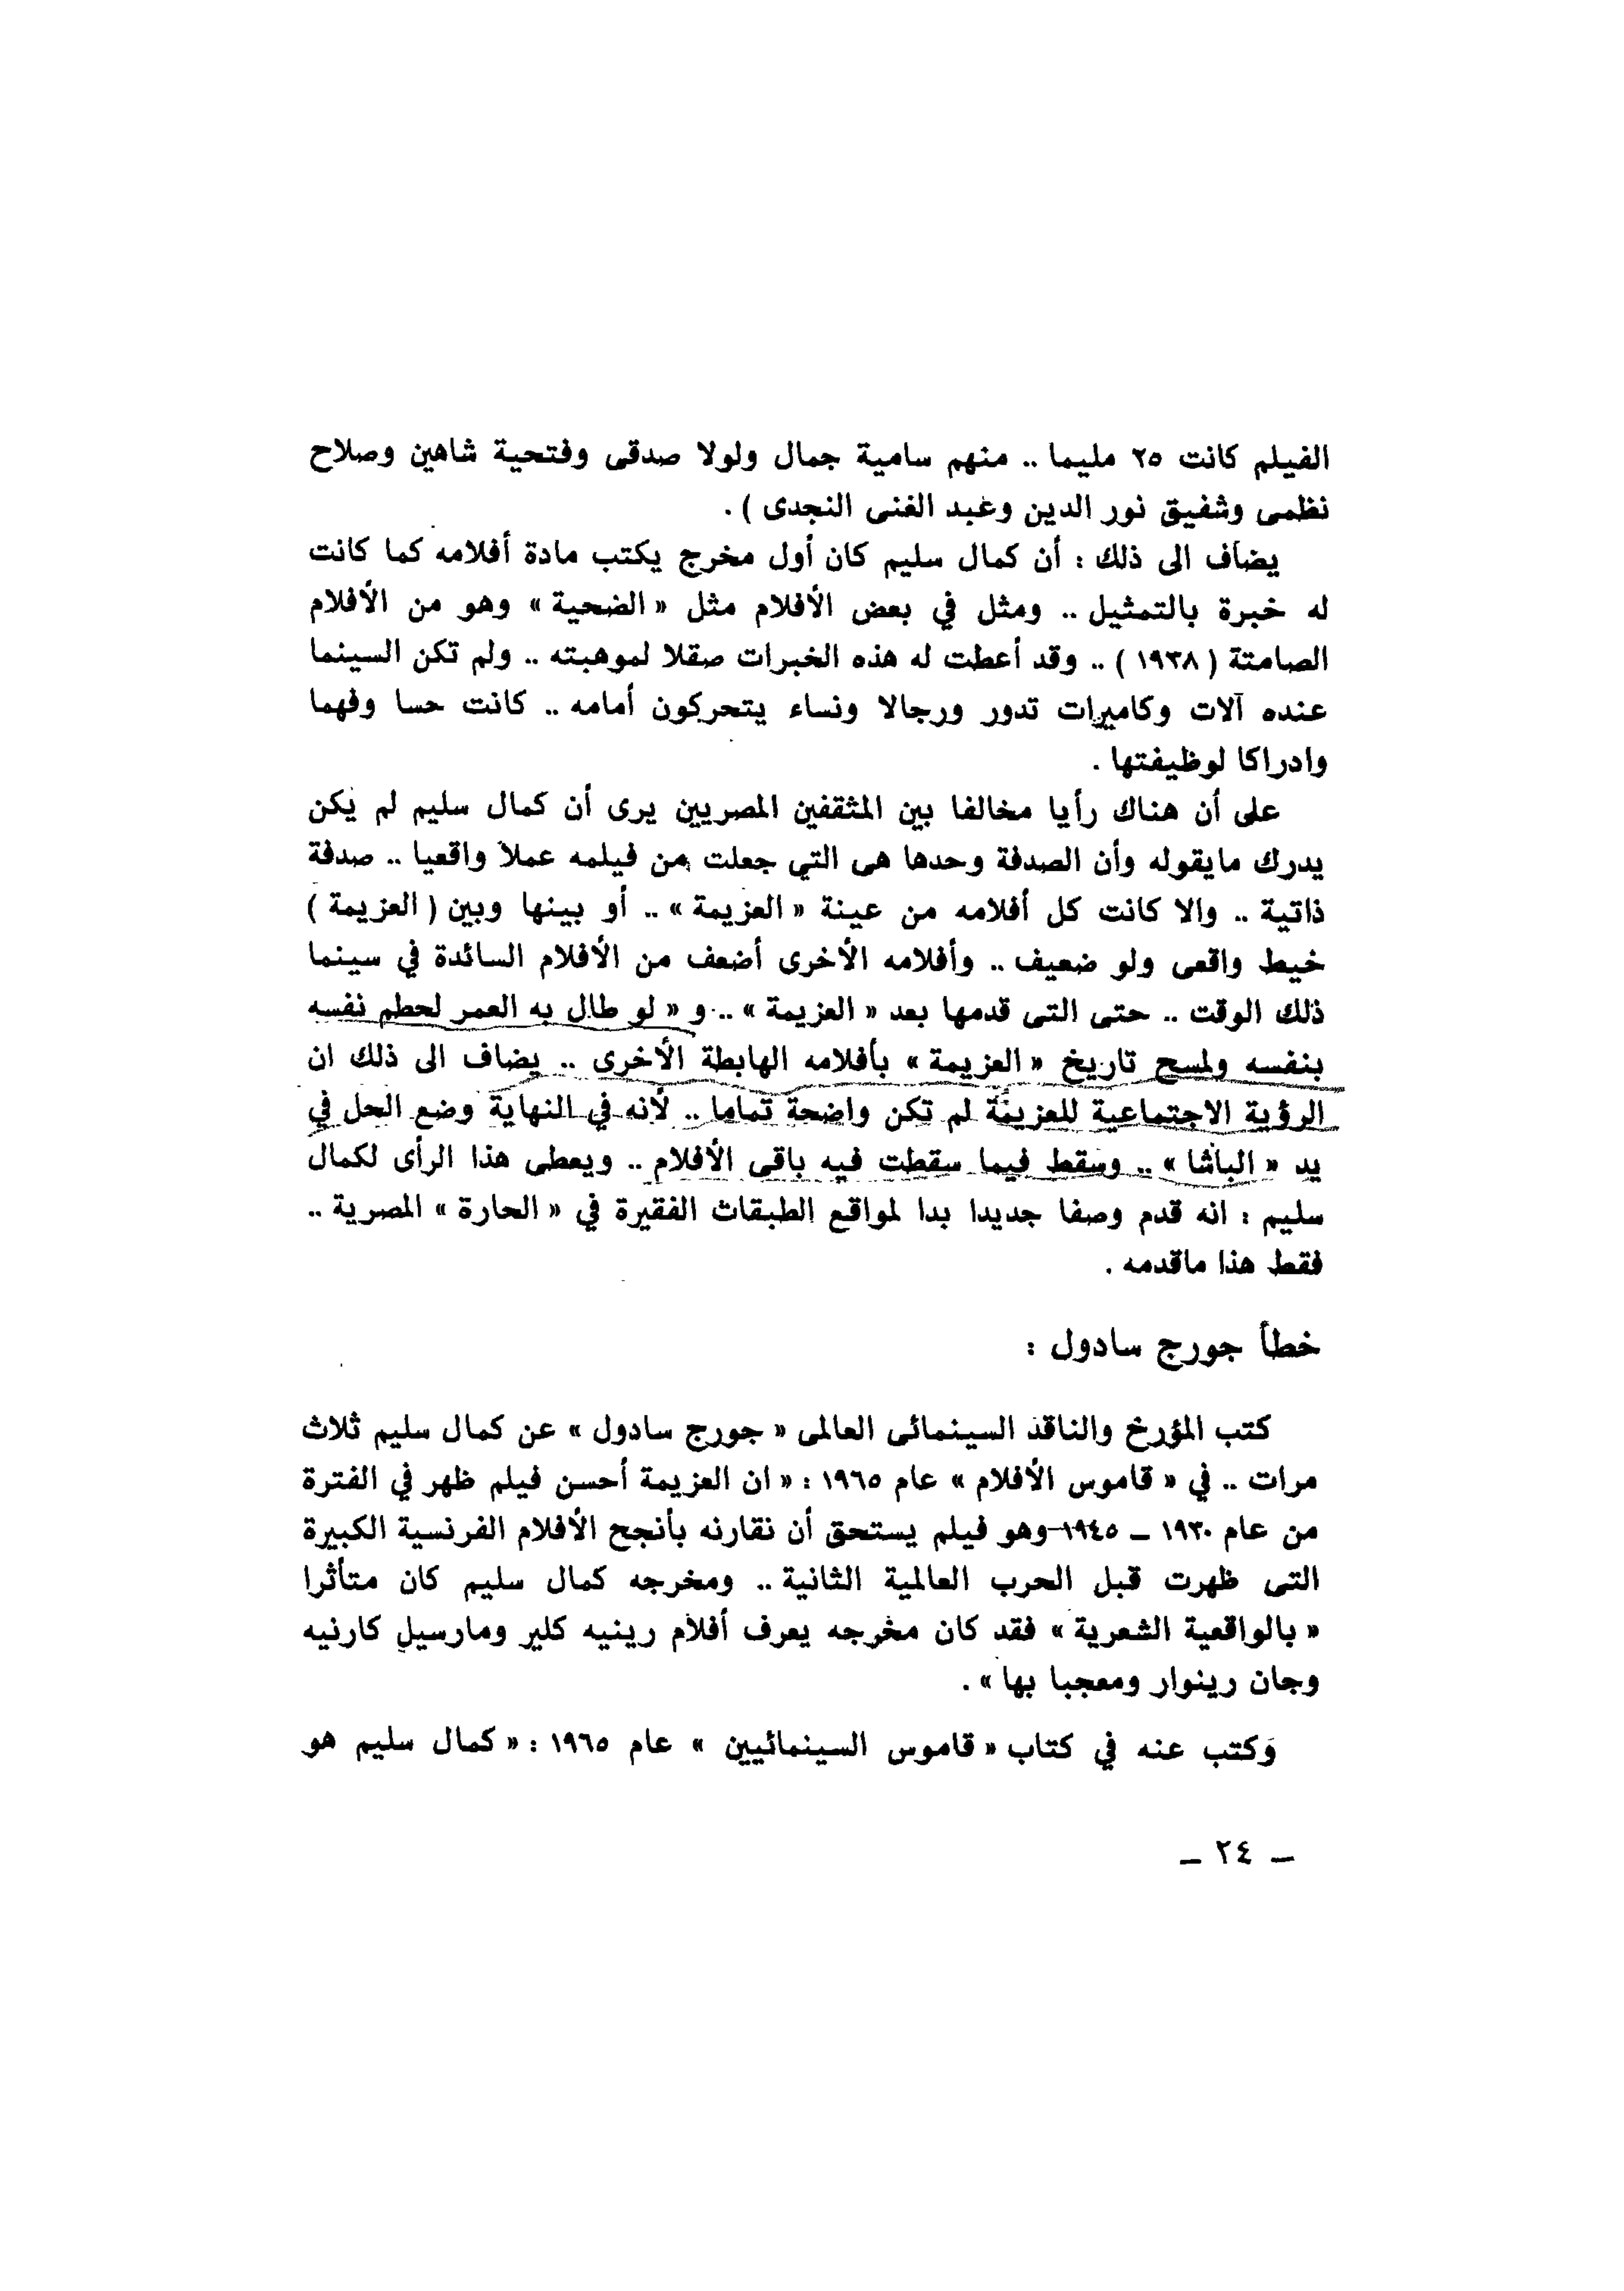 الفيلم كانت ٢٥ مليما .. منهم سامية جمال ولولا صدقى وفتحية شاهين وصلاح
نظمى وشفيق نور الدين وعبد الغنى النجدى ) .
يضاف الى ذلك : أن كمال سليم كان أول مخرج يكتب مادة أفلامه كما كانت
له خبرة بالتمثيل .. ومثل في بعض الأفلام مثل « الضحية » وهو من الأفلام
الصامتة ( ١٩٣٨ ) .. وقد أعطت له هذه الخبرات صقلا لموهبته .. ولم تكن السينما
عنده آلات وكاميرات تدور ورجالا ونساء يتحركون أمامه .. كانت حسا وفهما
وادراكا لوظيفتها .
على أن هناك رأيا مخالفا بين المثقفين المصريين يرى أن كمال سليم لم يكن
يدرك مايقوله وأن الصدفة وحدها هى التي جعلت من فيلمه عملا واقعيا .. صدفة
ذاتية .. والا كانت كل أفلامه من عينة « العزيمة » .. أو بينها وبين ( العزيمة )
خيط واقعى ولو ضعيف .. وأفلامه الأخرى أضعف من الأفلام السائدة في سينما
ذلك الوقت .. حتى التى قدمها بعد « العزيمة » .. و « لو طال به العمر لحطم نفسه
بنفسه ولمسح تاريخ « العزيمة » بأفلامه الهابطة الأخرى .. يضاف الى ذلك ان
الرؤية الاجتماعية للعزيمة لم تكن واضحة تماما .. لأنه في النهاية وضع الحل في
يد « الباشا » .. وسقط فيما سقطت فيه باقى الأفلام .. ويعطى هذا الرأى لكمال
سليم : انه قدم وصفا جديدا بدا لمواقع الطبقات الفقيرة في « الحارة » المصرية ..
فقط هذا ماقدمه .
خطأ جورج سادول :
كتب المؤرخ والناقد السينمائى العالمى « جورج سادول » عن كمال سليم ثلاث
مرات .. في « قاموس الأفلام » عام ١٩٦٥ : « ان العزيمة أحسن فيلم ظهر في الفترة
من عام ١٩٣٠ – ١٩٤٥ وهو فيلم يستحق أن نقارنه بأنجح الأفلام الفرنسية الكبيرة
التى ظهرت قبل الحرب العالمية الثانية .. ومخرجه كمال سليم كان متأثرا
« بالواقعية الشعرية » فقد كان مخرجه يعرف أفلام رينيه كلير ومارسيل كارنيه
وجان رينوار ومعجبا بها » .
وكتب عنه في كتاب « قاموس السينمائيين » عام ١٩٦٥ : « كمال سليم هو
– ٢٤ –